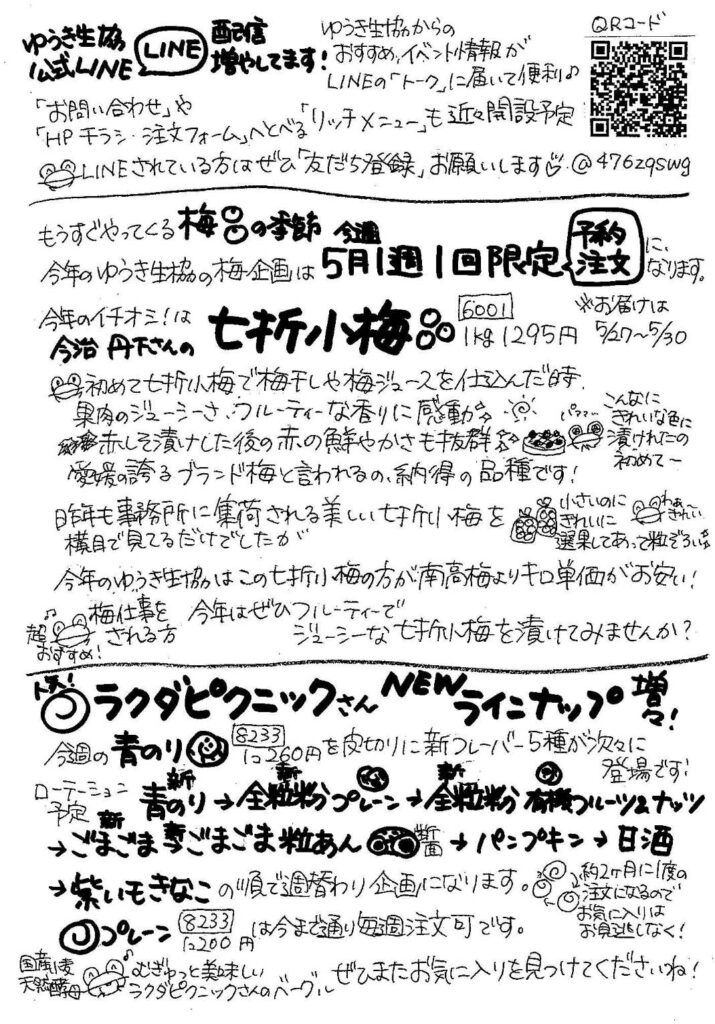 ゆうき生協
公式LINE
LINE
配信
増やしてます!
ゆうき生協からの
おすすめ、イベント情報が
LINEの「トーク」に届いて便利♪
QRコード
「お問い合わせ」や
「HP チラシ・注文フォーム」へとべる「リッチメニュー」も近々開設予定
LINEされている方はぜひ「友だち登録」お願いします @476zqswg
もうすぐやってくる梅の季節
今年のゆうき生協の梅企画は 今週 5月1週1回限定 予約注文 に、なります。
今年のイチオシ!は
今治 丹下さんの 七折小梅
6001
1kg 1295円
※お届けは
5/27〜5/30
初めて七折小梅で梅干しや梅ジュースを仕込んだ時、
果肉のジューシーさ、フルーティーな香りに感動
赤しそ漬けした後の赤の鮮やかさも抜群
愛媛の誇るブランド梅と言われるの、納得の品種です!
こんなに
きれいな色に
漬けれたの
初めて〜
昨年も事務所に集荷される美しい七折小梅を
横目で見てるだけでしたが
小さいのに
きれいに
選果してあって粒ぞろい
わぁ
きれい
今年のゆうき生協はこの七折小梅の方が南高梅よりキロ単価がお安い!
超おすすめ!
梅仕事を
される方
今年はぜひフルーティーで
ジューシーな七折小梅を漬けてみませんか?
人気!
ラクダピクニックさん NEW ラインナップ増々!
今週の青のり 8233 1コ260円を皮切りに新フレーバー5種が次々に
登場です!
ローテーション
予定
新 青のり→新 全粒粉プレーン→新 全粒粉 有機フルーツ&ナッツ
→新 ごまごま→新 ごまごま粒あん→パンプキン→甘酒
→紫いもきなこ の順で週替わり企画になります。
約2ヶ月に1度の
注文になるので
お気に入りは
お見逃しなく!
プレーン 8233 1コ200円 は今まで通り毎週注文可です。
国産小麦
天然酵母
むぎゅっと美味しい
ラクダピクニックさんのベーグル
ぜひまたお気に入りを見つけてくださいね!